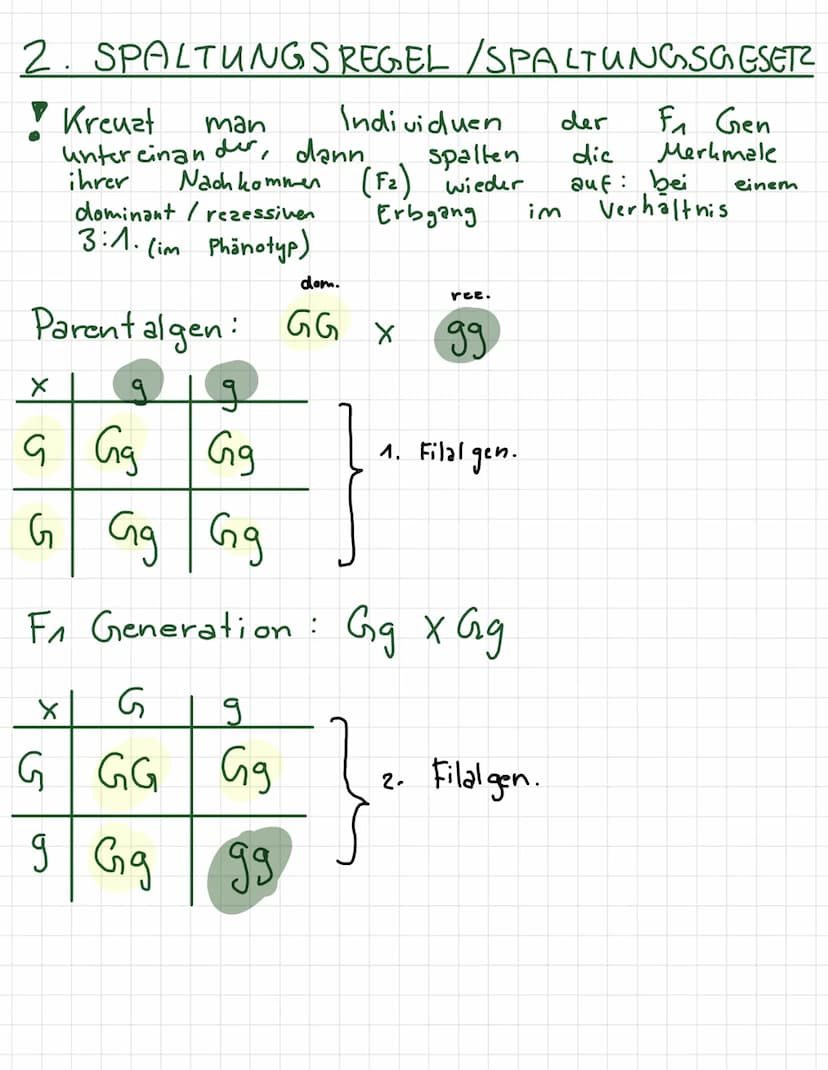 2. SPALTUNGSREGEL /SPALTUNGSGESETZ
! Kreuzt man Individuen der F1 Gen
untereinander, dann spalten die Merkmale
ihrer Nachkommen (F2) wieder auf: bei einem
dominant / rezessiven Erbgang im Verhältnis
3:1. (im Phänotyp)
dom. rez.
Parentalgen: GG x gg
x g g
G Gg Gg
1. Filalgen.
G Gg Gg
F1 Generation: Gg x Gg
x G g
G GG Gg
2. Filalgen.
g Gg gg